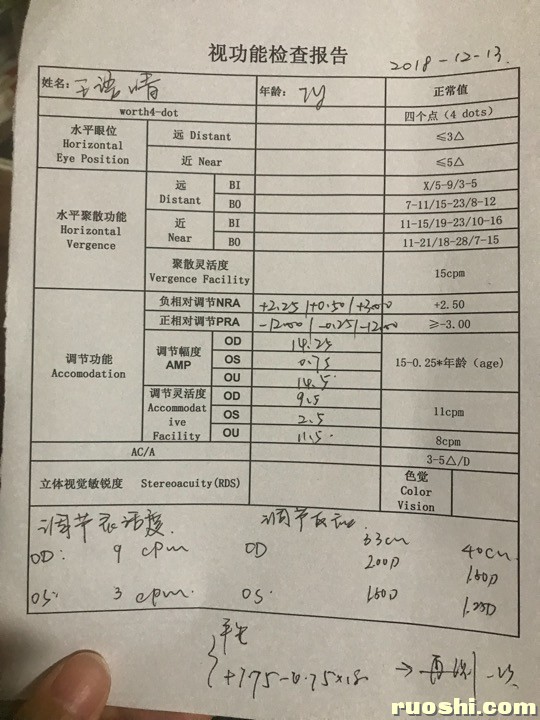 视功能检查报告
2018-12-13.
姓名: 年龄: 正常值
worth4-dot 四个点（4 dots）
水平眼位 Horizontal Eye Position 远 Distant ≤3△
近 Near ≤5△
水平聚散功能 Horizontal Vergence 远 Distant BI X/5-9/3-5
BO 7-11/15-23/8-12
近 Near BI 11-15/19-23/10-16
BO 11-21/18-28/7-15
聚散灵活度 Vergence Facility 15cpm
调节功能 Accomodation 负相对调节NRA +2.25/+0.50/+3.00 +2.50
正相对调节PRA -12.00/-0.25/-12.00 ≥-3.00
调节幅度 AMP OD 14.25 15-0.25*年龄（age）
OS 0.75
OU 14.5
调节灵活度 Accommodat ive Facility OD 9.5 11cpm
OS 2.5
OU 11.5 8cpm
AC/A 3-5△/D
立体视觉敏锐度 Stereoacuity(RDS) 色觉 Color Vision
调节灵活度. 调节反应. 33cm 40cm
OD: 9 cpm OD 2.00D 1.50D
OS: 3 cpm. OS: 1.50D 1.25D
平光
+1.75-0.75×18 → 再测一次
ruoshi.com